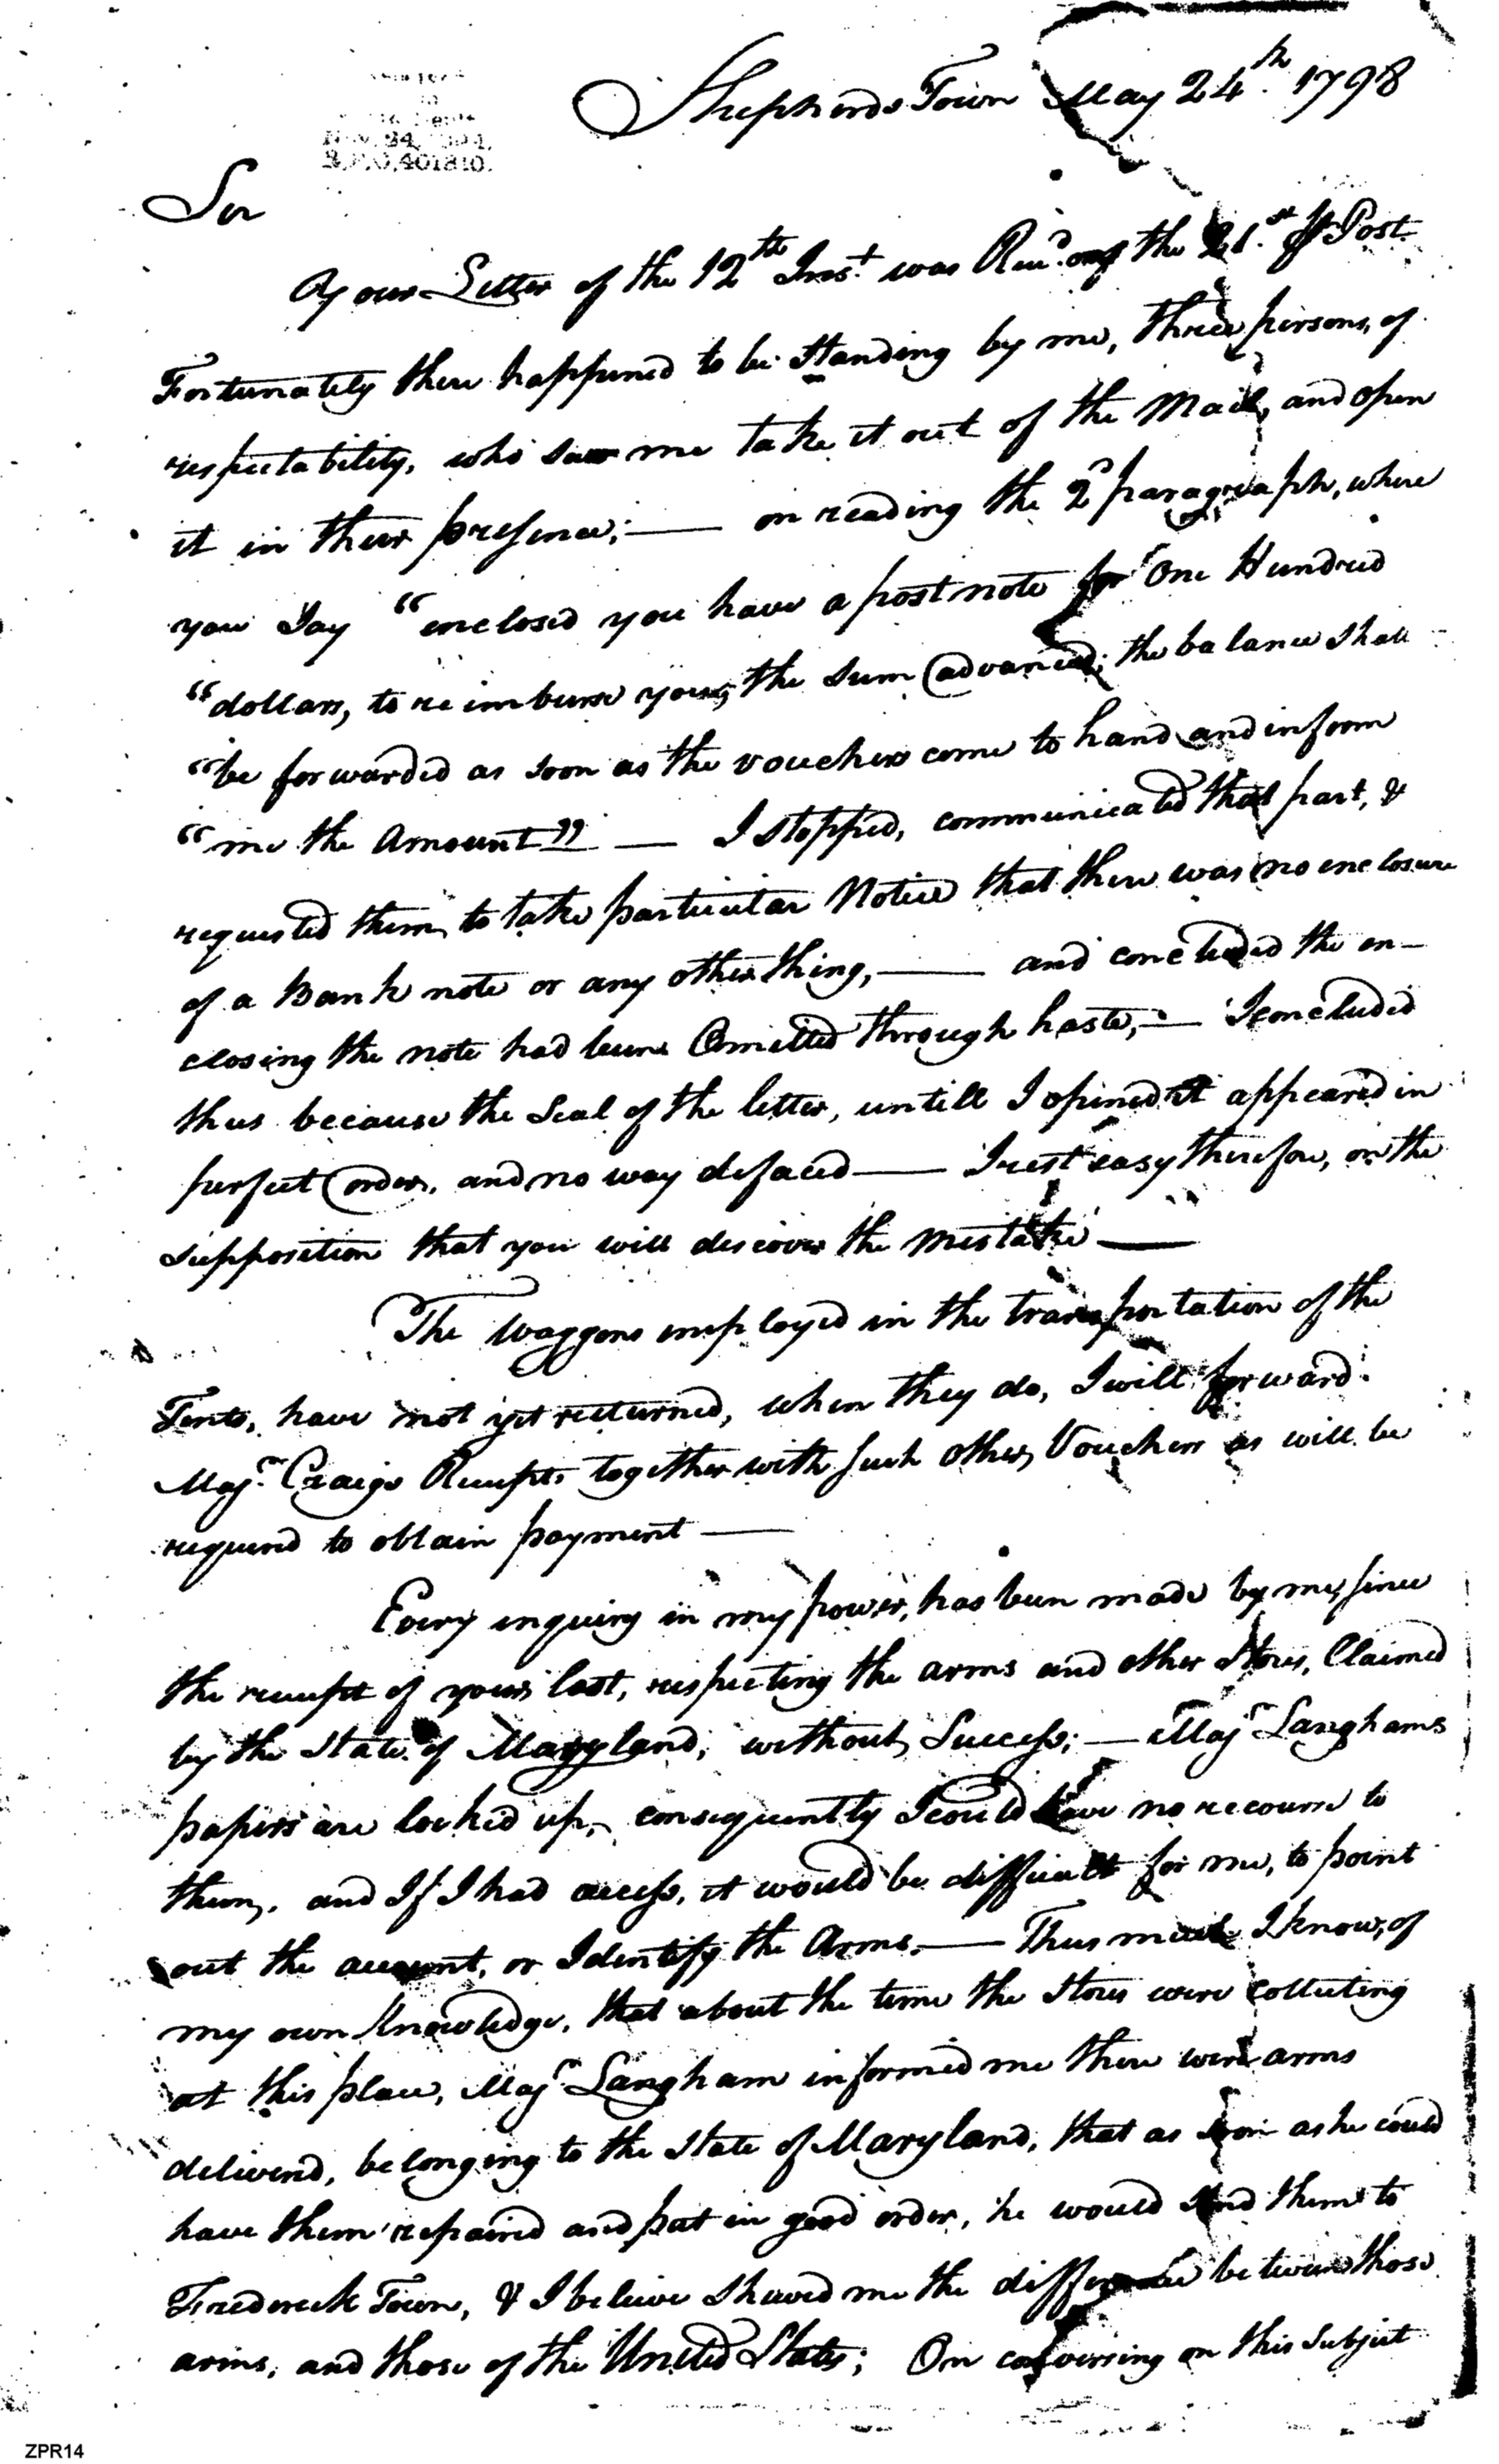 Shepherds Town May 24th. 1798
Sir
Your Letter of the 12th Inst. was Recd. on the 21.st Post.
Fortunately there happened to be standing by me, three persons, of
respectability, who saw me take it out of the Mail, and open
it in their presence; — on reading the 2d paragraph, where
you Say "enclosed you have a post note for One Hundred
"dollars, to reimburse you, the sum advanced; the balance shall
"be forwarded as soon as the vouchers come to hand and inform
"me the Amount" — I stopped, communicated that part, &
requested them, to take particular Notice that there was no enclosure
of a Bank note or any other thing, — and concluded the en-
closing the note had been Omitted through haste, — I concluded
thus because the Seal of the letter, untill I opined it appeared in
perfect order, and no way defaced — I rest easy therefore, on the
supposition that you will discover the mistake —
The Waggons employed in the transportation of the
Tents, have not yet returned, when they do, I will forward
Majr. Craigs Receipts together with such other Vouchers as will be
required to obtain payment —
Every inquiry in my power, has been made by me, since
the receipt of yours last, respecting the arms and other Stores, Claimed
by the State of Maryland, without Success; — Majr Langhams
papers are locked up, consequently I could have no recourse to
them, and If I had access, it would be difficult for me, to point
out the account, or Identify the Arms. — Thus much I know, of
my own Knowledge, that about the time the Stores were collecting
at this place, Majr Langham informed me there were arms
delivered, belonging to the State of Maryland, that as soon as he could
have them repaired and put in good order, he would send them to
Frederick Town, & I believe shewed me the difference between those
arms, and those of the United States; On conversing on this Subject
ZPR14